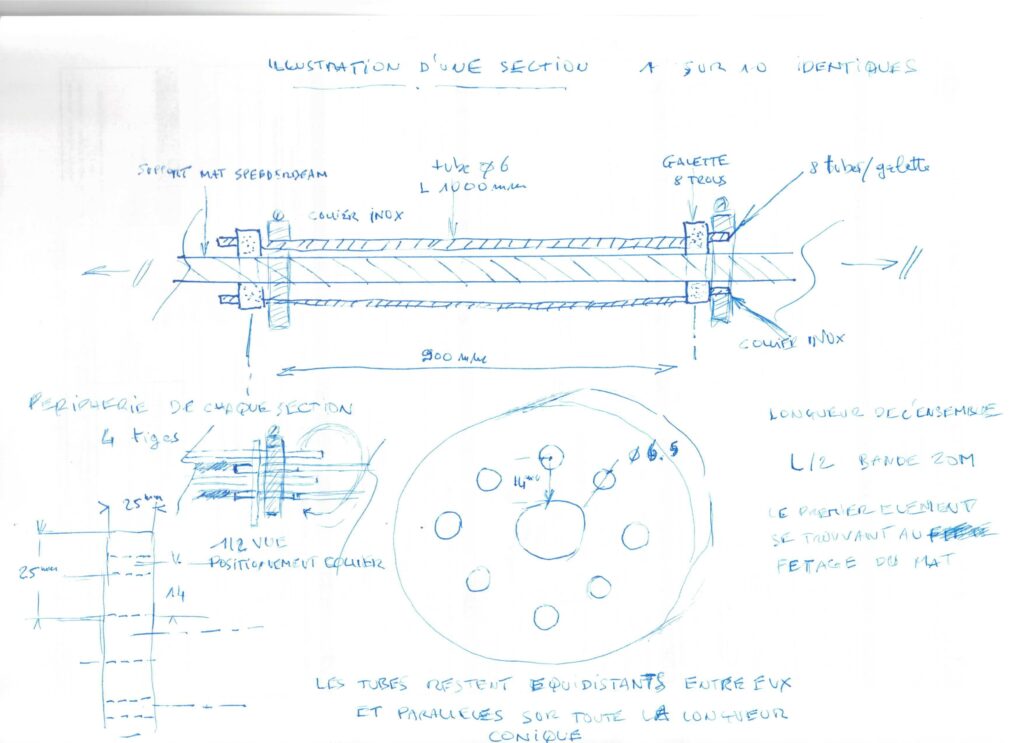 ILLUSTRATION D'UNE SECTION 1 SUR 10 IDENTIQUES
SUPPORT MAT SPEEDERBEAM
tube ø6
L 1000mm
GALETTE
8 TROUS
8 tubes/galette
COLLIER INOX
COLLIER INOX
900 mm
PERIPHERIE DE CHAQUE SECTION
4 tiges
LONGUEUR DE L'ENSEMBLE
L/2 BANDE 20M
LE PREMIER ELEMENT
SE TROUVANT AU
FETAGE DU MAT
ø 6.5
14mm
25mm
1/2 VUE
POSITIONEMENT COLLIER
25mm
14
LES TUBES RESTENT EQUIDISTANTS ENTRE EUX
ET PARALLELES SUR TOUTE LA LONGUEUR
CONIQUE